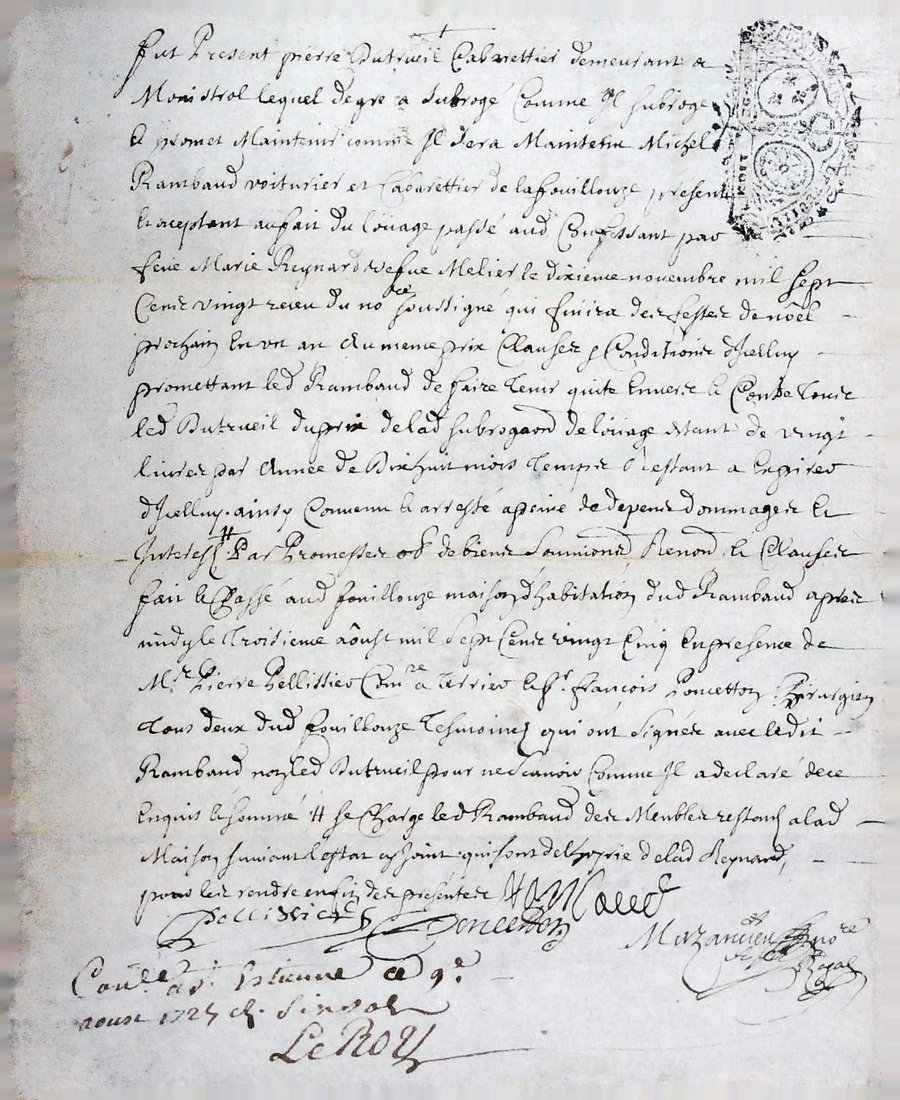 fut Present pierre Dutrueil Cabarettier demeurant a
Monistrol lequel de gre a subrogé Comme Il subroge
& promet Maintenir comme Il sera Maintenu Michel
Rambaud voiturier et Cabarettier de la fouillouze present
& aceptant au fait du loüage passé aud Confessant par
feüe Marie Reynard vefve Melier le dixieme novembre mil sept
Cens vingt receu du nore soussigné qui finira des festes de noêl
prochain en un an Au meme prix Clauses & Conditions d'Icelluy
promettant led Rambaud de faire Tenir quite Envers & Contre Tous
led Dutrueil du prix de lad subrogaon de loüage Etant de vingt
livres par Année de Dixhuit mois Temps Restant a Expirer
d'Icelluy. ainsy Convenu & arresté a peine de depens dommages Et
Interests # Par Promesses ob de biens soumions Renond & Clauses
fait & Passé aud fouillouze maison d'habitation dud Rambaud apres
midy le Troisieme aôust mil Sept Cens vingt Cinq En presence de
Mr Pierre Pellissier Comre a Terrier & Sr. françois Poncetton Chirurgien
Tous deux dud fouillouze Tesmoins qui ont Signés avec ledit
Rambaud non led Dutrueil pour ne Scavoir Comme Il a declaré de ce
Enquis & sommé # se Charge led Rambaud des Meubles restans a lad
Maison suivant l'estat cy joint qui sont de l'hoirie de lad Reynard,
pour les rendre en fin des presentes Rambaud
Pellissier Poncetton
Mirzancieu nore Royal
Conle. a St. Estienne Ce 9e.
aoust 1725 R. Six sols
Le ROY